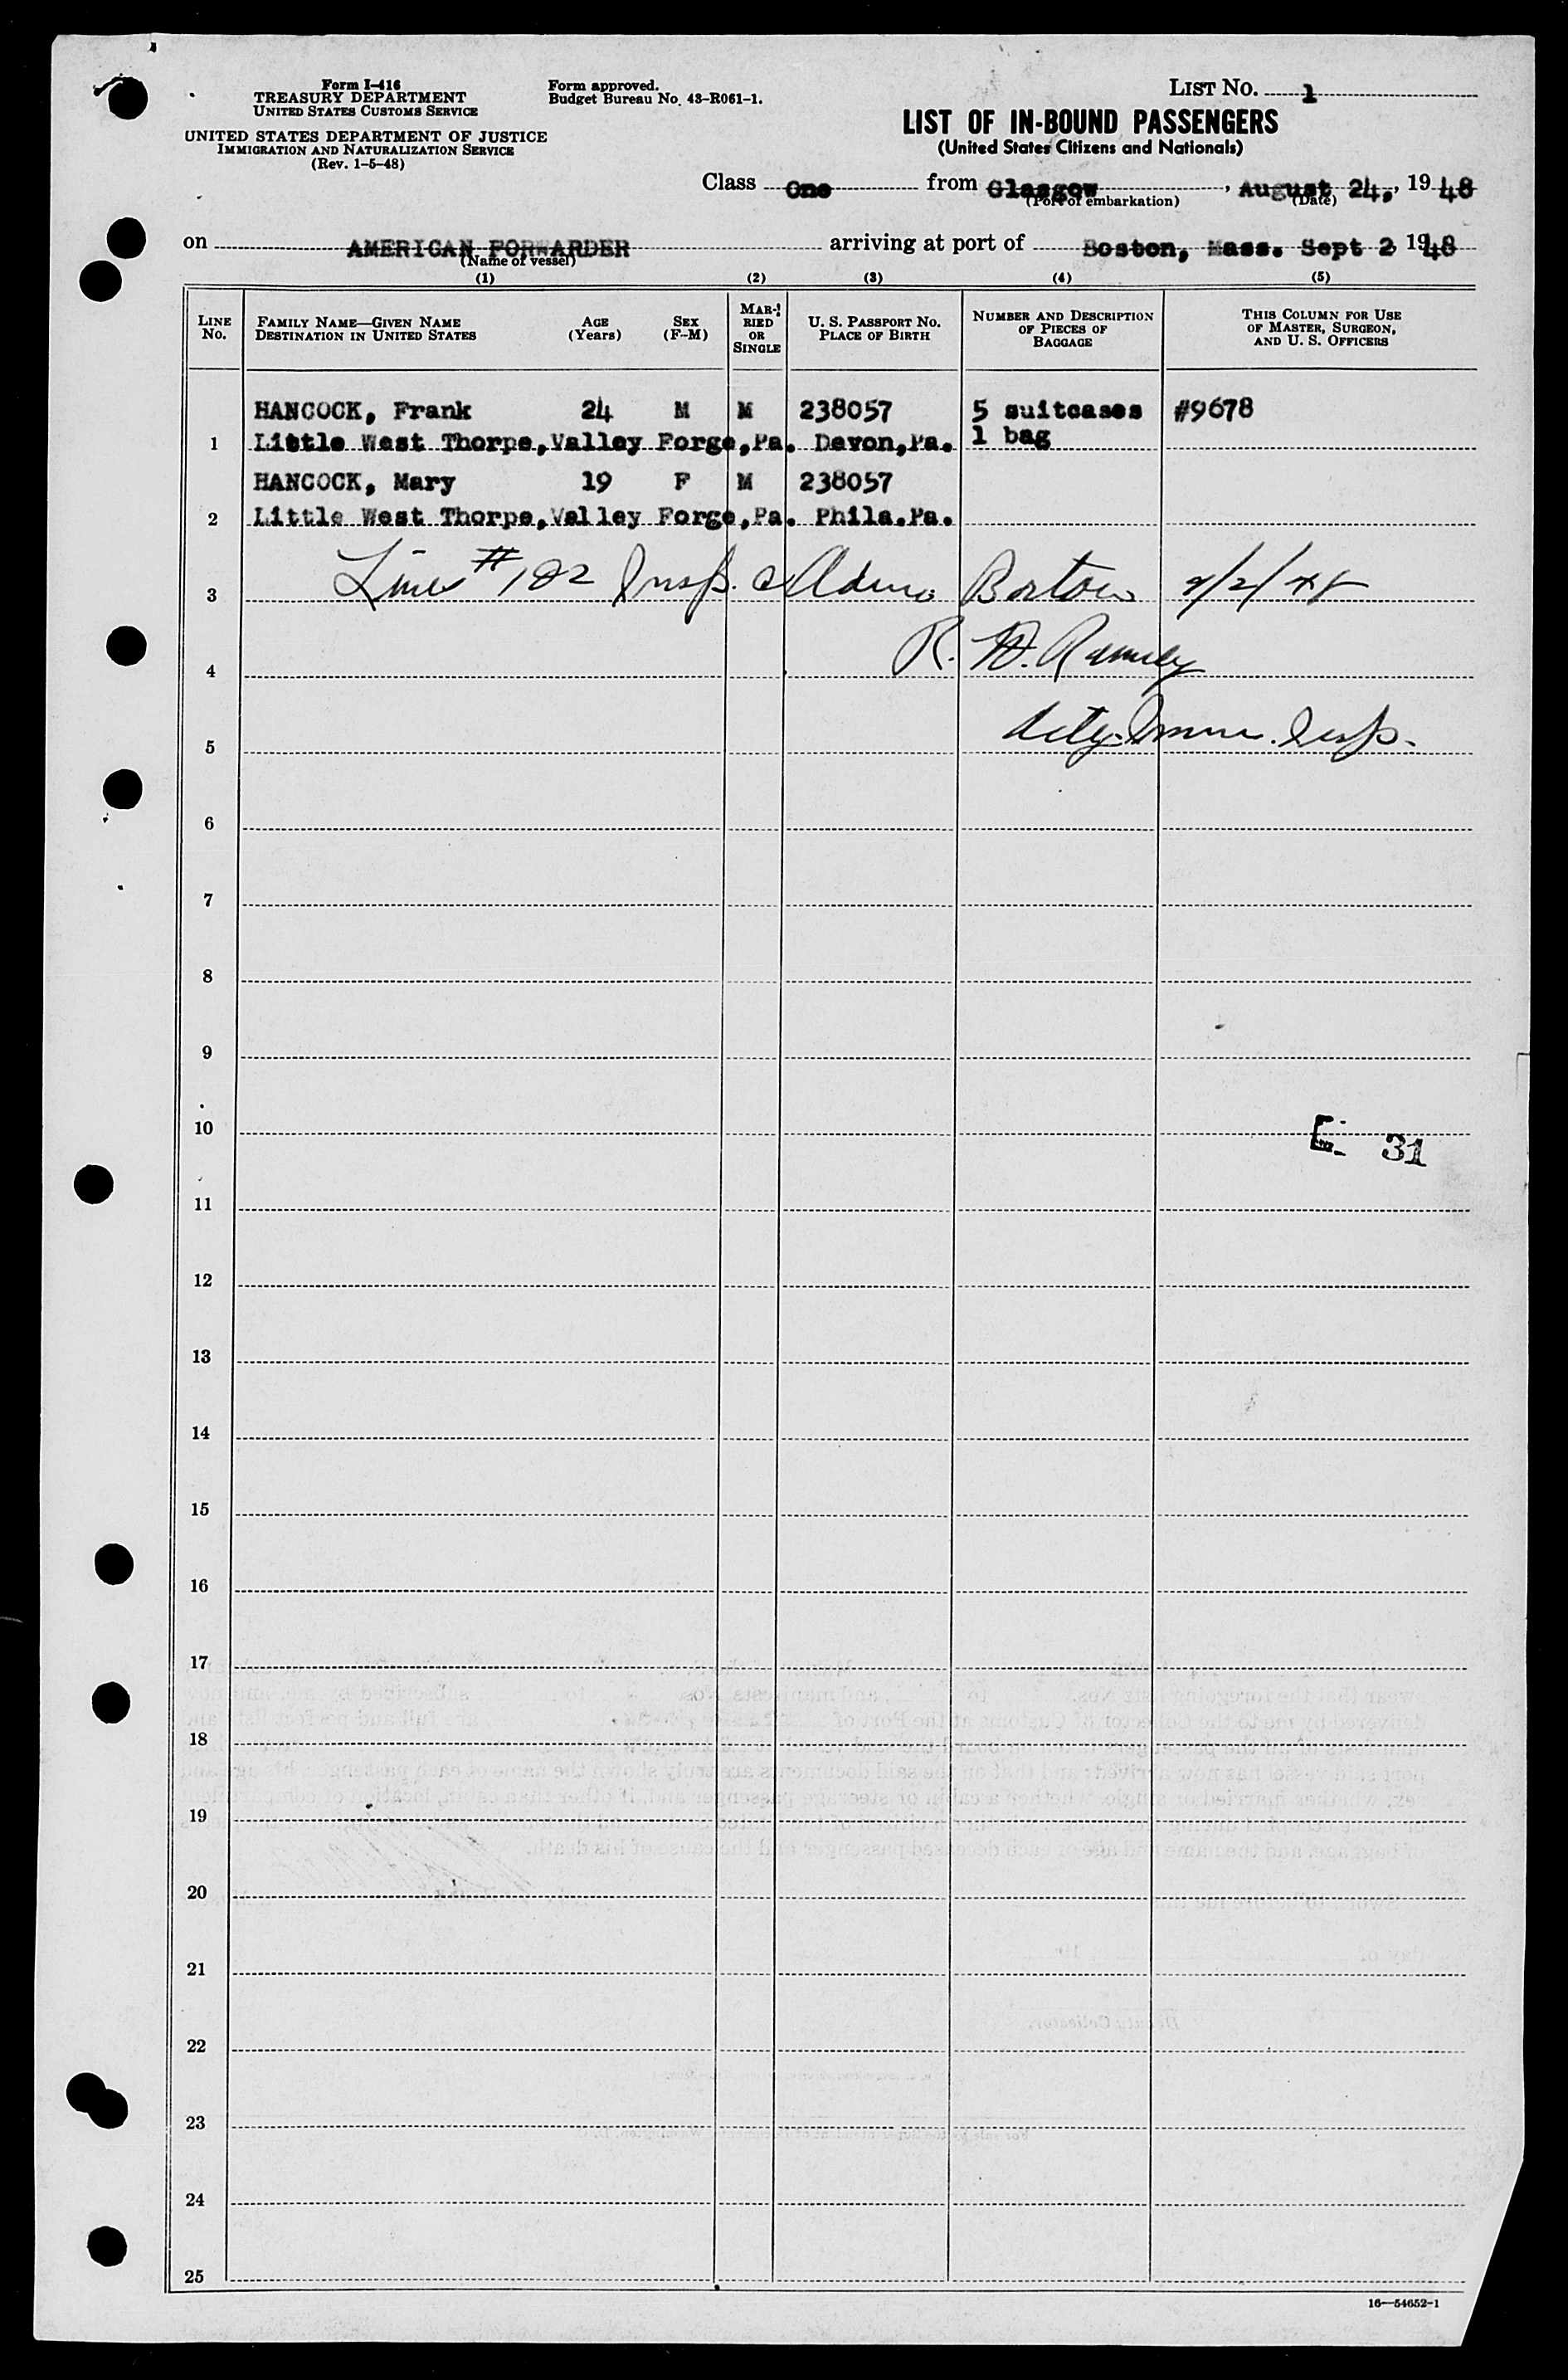 Form I-416
TREASURY DEPARTMENT
UNITED STATES CUSTOMS SERVICE
UNITED STATES DEPARTMENT OF JUSTICE
IMMIGRATION AND NATURALIZATION SERVICE
(Rev. 1-5-48)
Form approved.
Budget Bureau No. 43-R061-1.
LIST No. 1
LIST OF IN-BOUND PASSENGERS
(United States Citizens and Nationals)
Class One from Glasgow, August 24, 1948
(Port of embarkation) (Date)
on AMERICAN FORWARDER arriving at port of Boston, Mass. Sept 2 1948
(Name of vessel)
(1) (2) (3) (4) (5)
LINE No.
FAMILY NAME—GIVEN NAME AGE SEX
DESTINATION IN UNITED STATES (Years) (F-M)
MARRIED OR SINGLE
U. S. PASSPORT NO.
PLACE OF BIRTH
NUMBER AND DESCRIPTION OF PIECES OF BAGGAGE
THIS COLUMN FOR USE OF MASTER, SURGEON, AND U. S. OFFICERS
HANCOCK, Frank 24 M M 238057 5 suitcases #9678
1 Little West Thorpe, Valley Forge, Pa. Devon, Pa. 1 bag
HANCOCK, Mary 19 F M 238057
2 Little West Thorpe, Valley Forge, Pa. Phila. Pa.
3 Lines #1&2 Insp. & Adm. Boston 9/2/48
4 R. D.
5 Actg. Imm. Insp.
6
7
8
9
10 E 31
11
12
13
14
15
16
17
18
19
20
21
22
23
24
25
16—54652-1